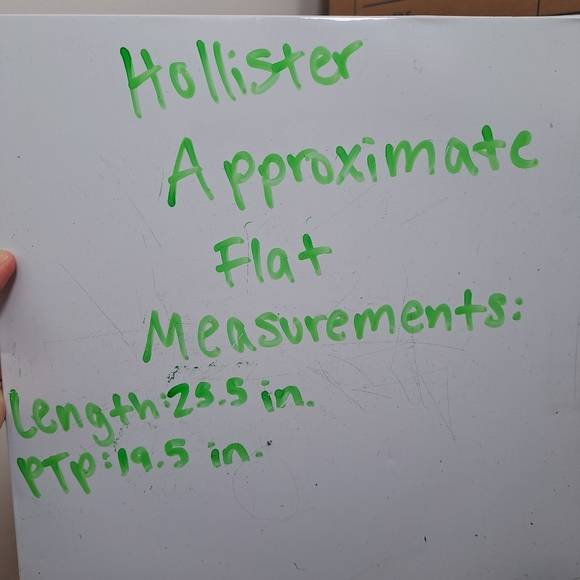 Hollister
Approximate
Flat
Measurements:
Length: 25.5 in.
PTP: 19.5 in.